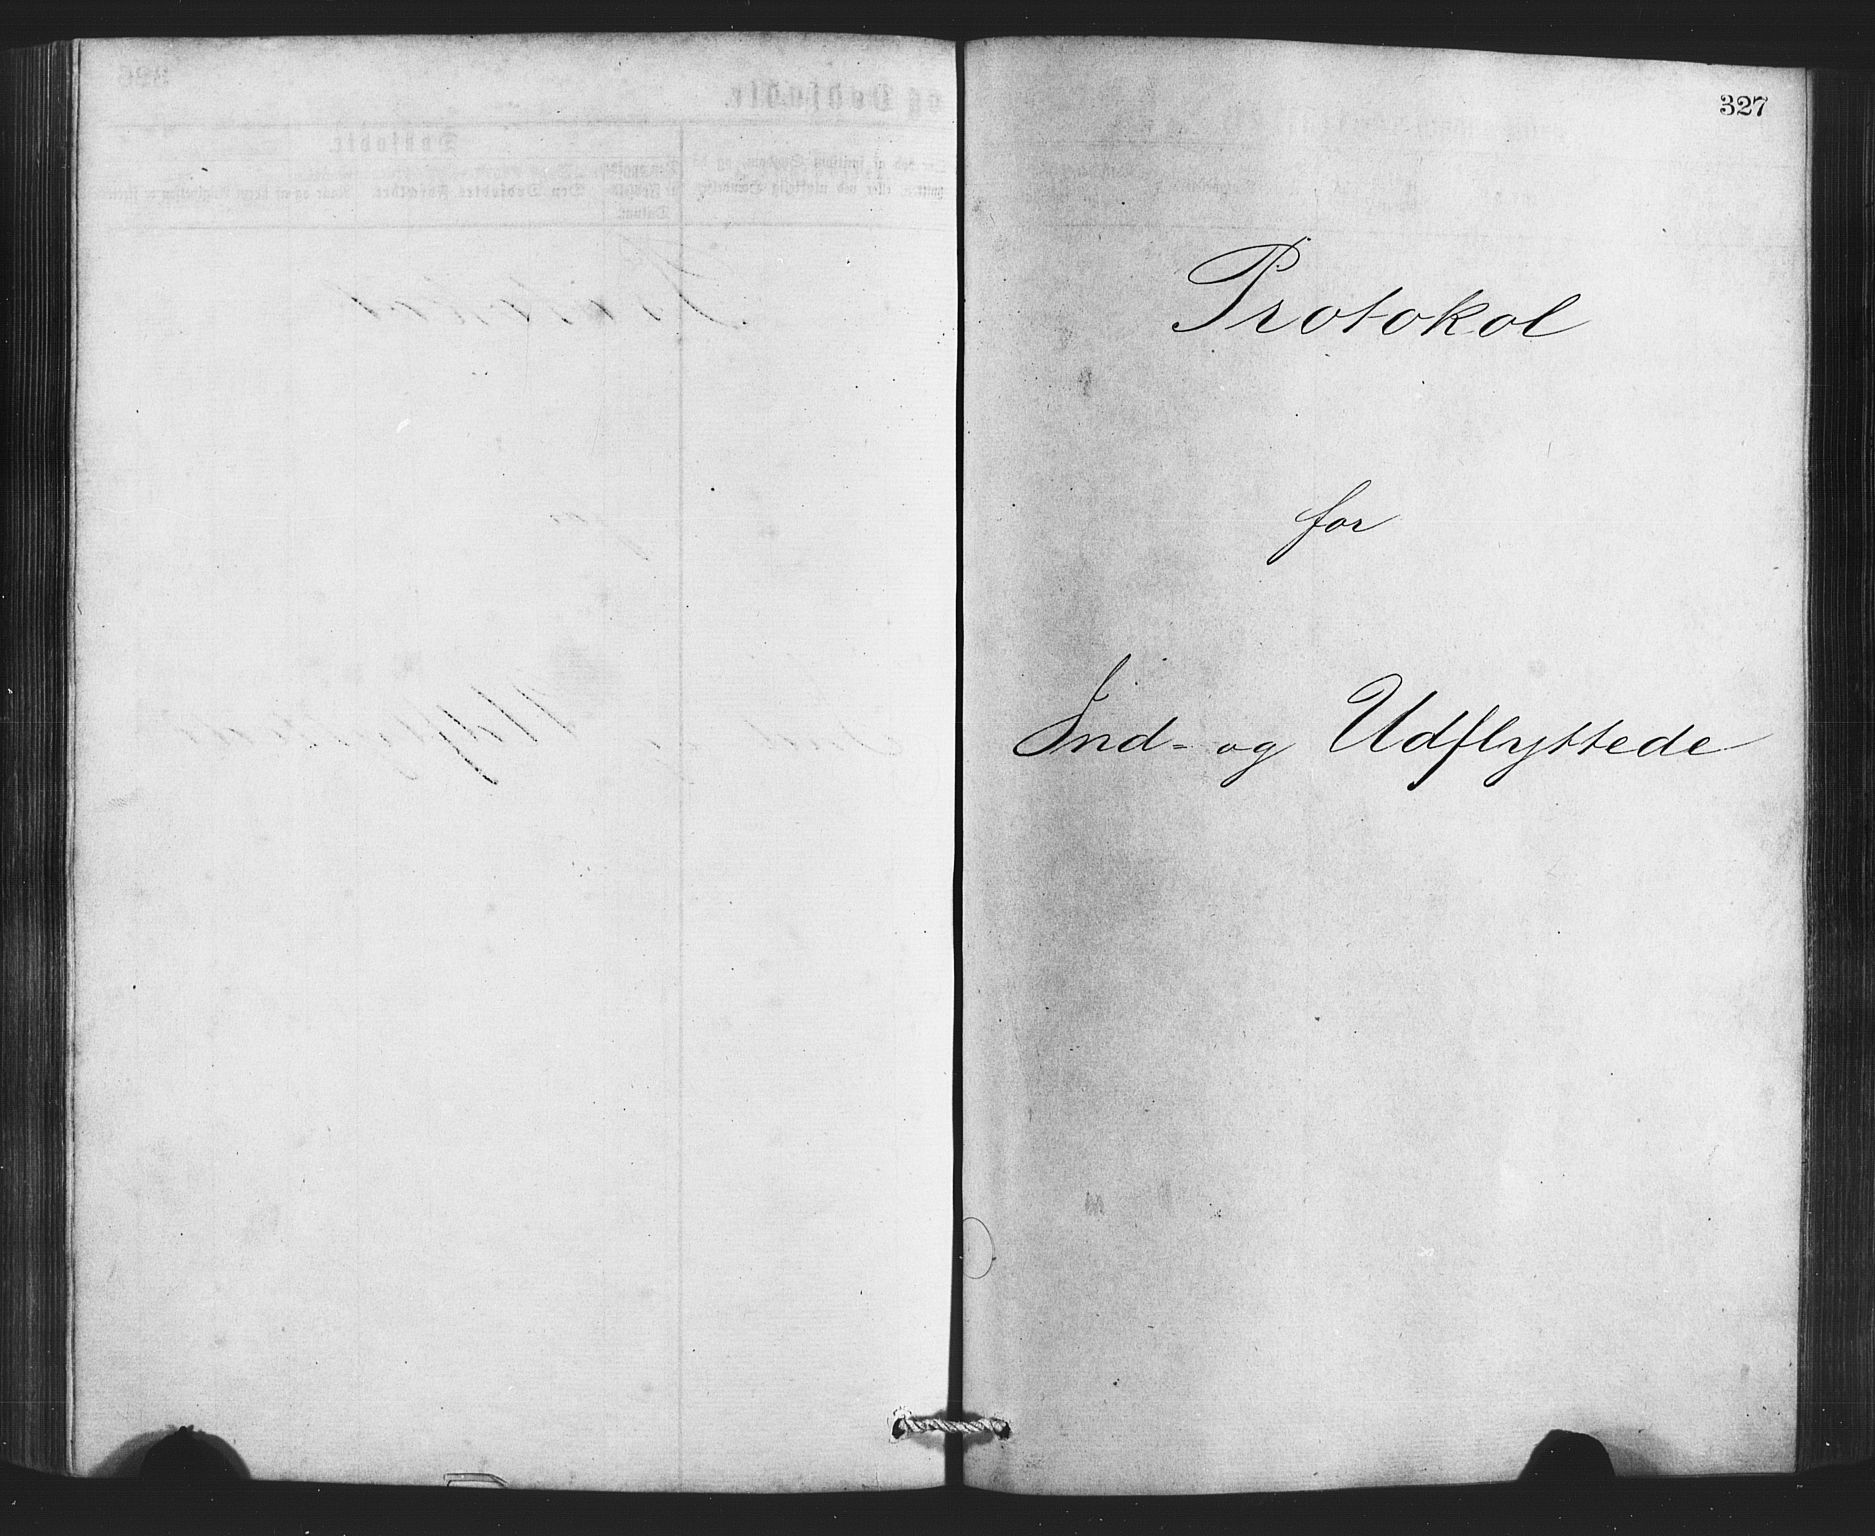 327
Protokol
for
Ind- og Udflyttede